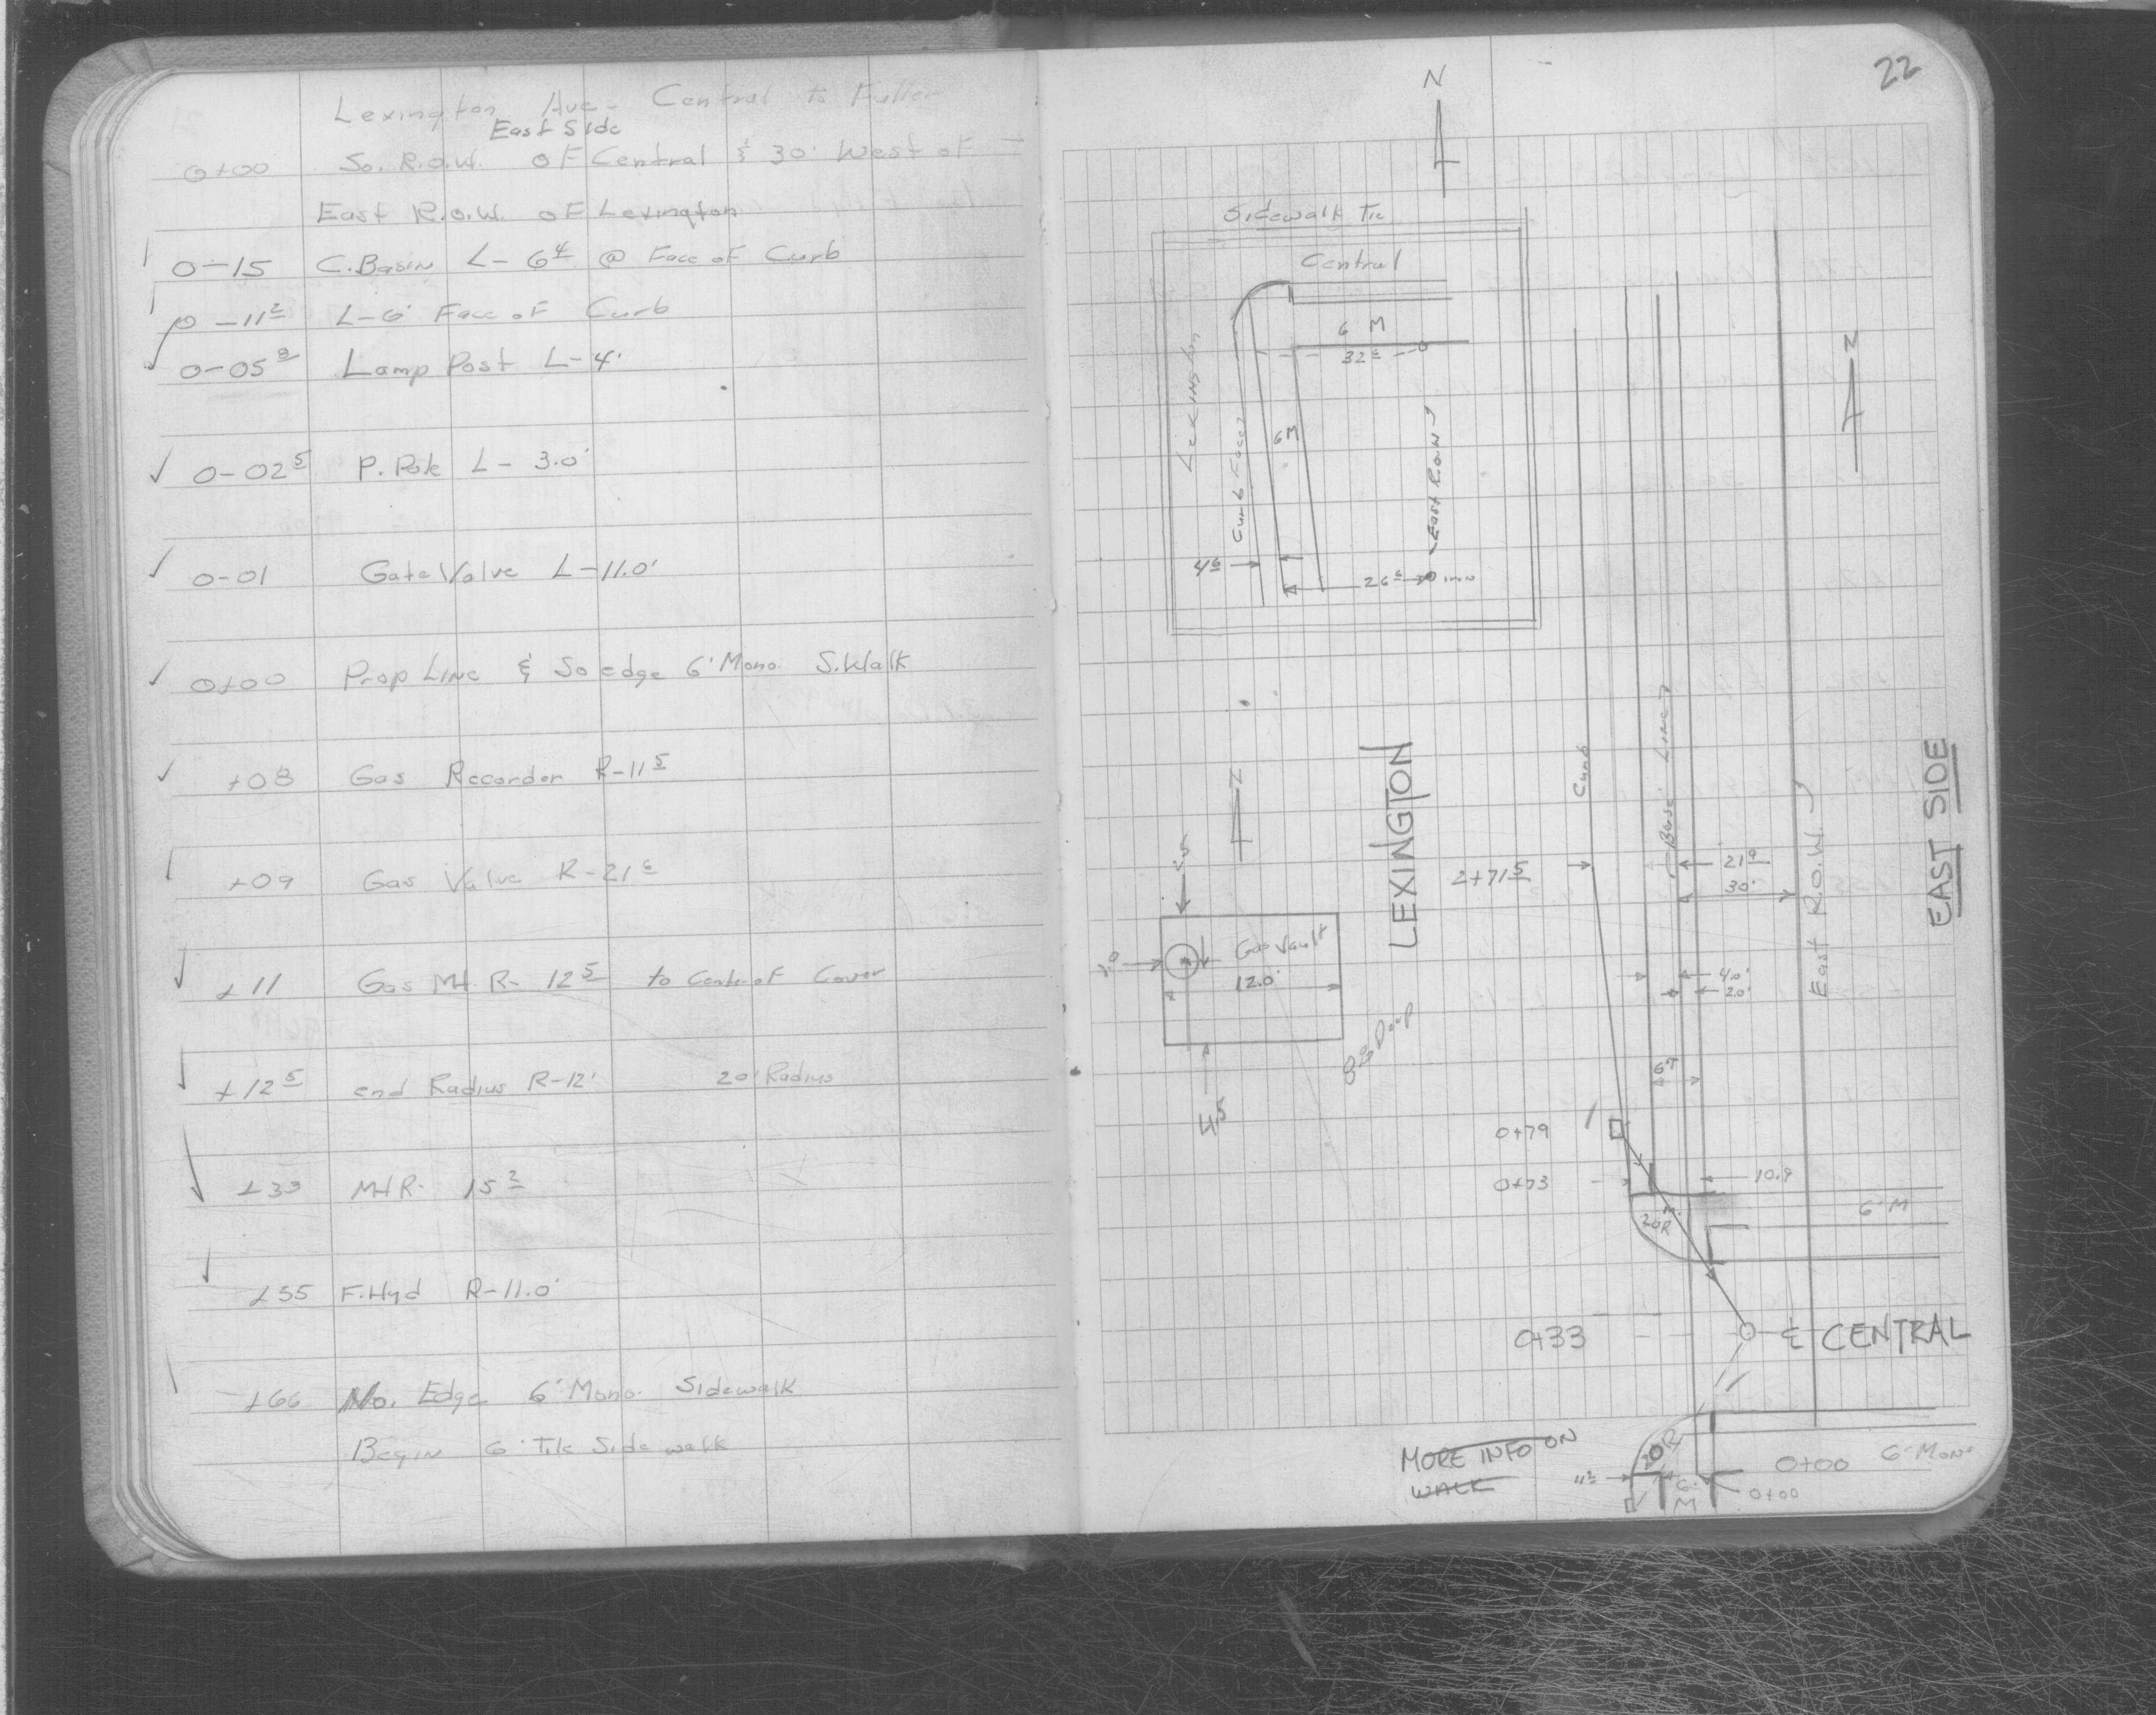 Lexington Ave - Central to Fuller
East Side
0+00 So. R.O.W. of Central & 30' West of
East R.O.W. of Lexington
0-15 C.Basin L-6⁴ @ Face of Curb
0-11² L-6' Face of Curb
0-05⁸ Lamp Post L-4'
0-02⁵ P.Pole L-3.0'
0-01 Gate Valve L-11.0'
0+00 Prop Line & So edge 6' Mono. S.Walk
+08 Gas Recorder R-11⁵
+09 Gas Valve R-21⁶
+11 Gas MH R-12⁵ to Cent. of Cover
+12⁵ end Radius R-12' 20' Radius
+33 MH R- 15²
+35 F.Hyd R-11.0'
+66 No. Edge 6' Mono. Sidewalk
Begin 6' Tile Sidewalk
22
N
Sidewalk Tie
Central
6 M
32⁶
Lexington
Curb Face
6M
East R.O.W.
4⁶
26⁶
iron
N
N
LEXINGTON
Curb
Base Line
East R.O.W.
EAST SIDE
2+71⁵
21⁹
30'
4.0'
2.0'
6'T
Gas Vault
12.0'
2.0
4.5
8.3 Deep
0+79
0+73
10.9
20R
6' M
0+33
℄ CENTRAL
MORE INFO ON
WALK
20R
11²
6'
M
0+00
0+00
6' Mono